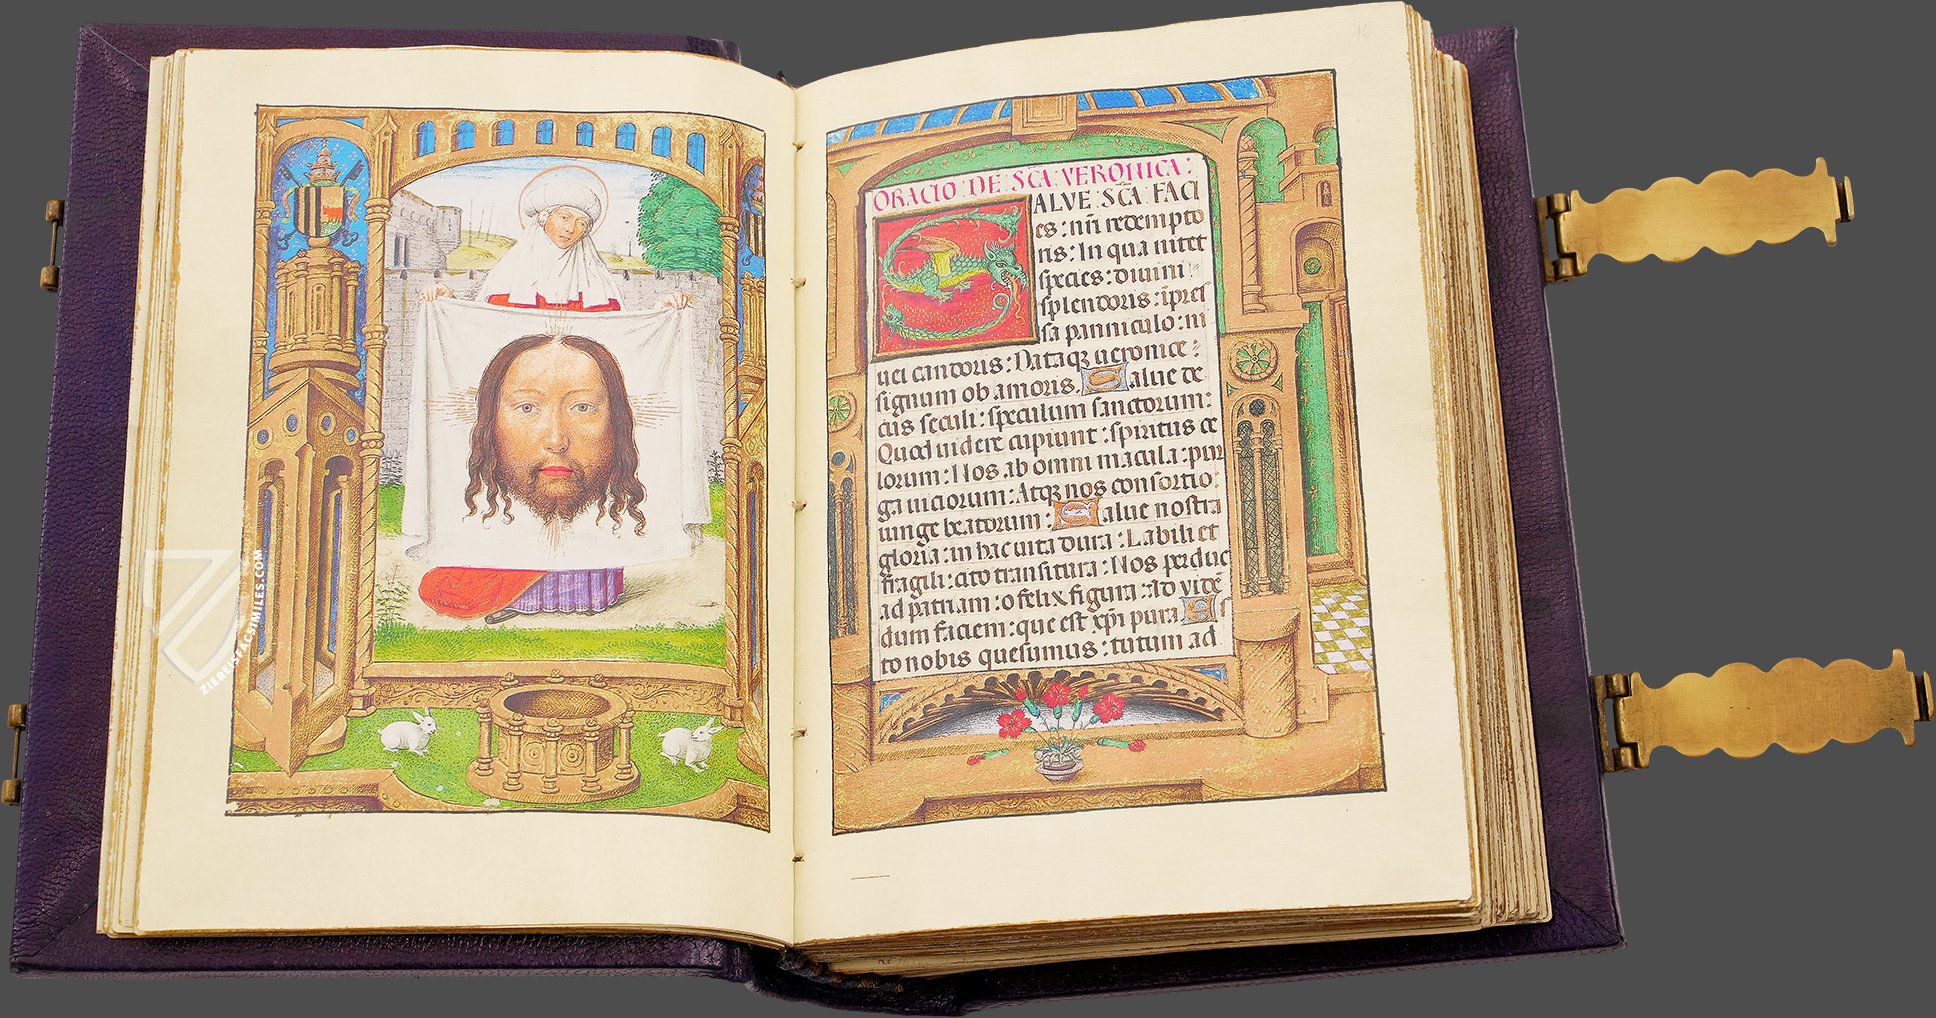 ZIEREIS FACSIMILES.COM
16
ORACIO·DE·SCA·VERONICA:
SALVE·SCA·FACI
es:nri redempto
ris:In qua nitet
species:divini
splendoris:ipres
sa panniculo:ni
vei candoris:Dataqz veronice:
signum ob amoris. Salve de
cus seculi:speculum sanctorum:
Quod videre cupiunt:spiritus ce
lorum:Nos ab omni macula:pur
ga viciorum:Atqz nos consortio:
iunge beatorum: Salve nostra
gloria:in hac vita dura:Labili et
fragili:cito transitura:Nos perduc
ad patriam:o felix figura:Ad vidē
dum faciem:que est xp̄i pura. Es
to nobis quesumus:tutum ad